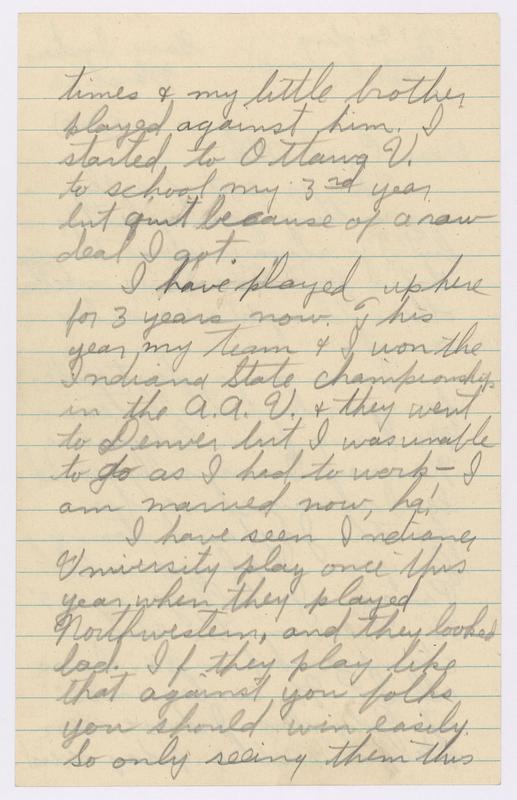 times & my little brother
played against him. I
started to Ottawa U.
to school my 3rd year
but quit because of a raw
deal I got.
I have played up here
for 3 years now. This
year my team & I won the
Indiana State championship
in the A.A.U. & they went
to Denver but I was unable
to go as I had to work - I
am married now, ha!
I have seen Indiana
University play once this
year, when they played
Northwestern, and they looked
bad. If they play like
that against you folks
you should win easily.
So only seeing them this